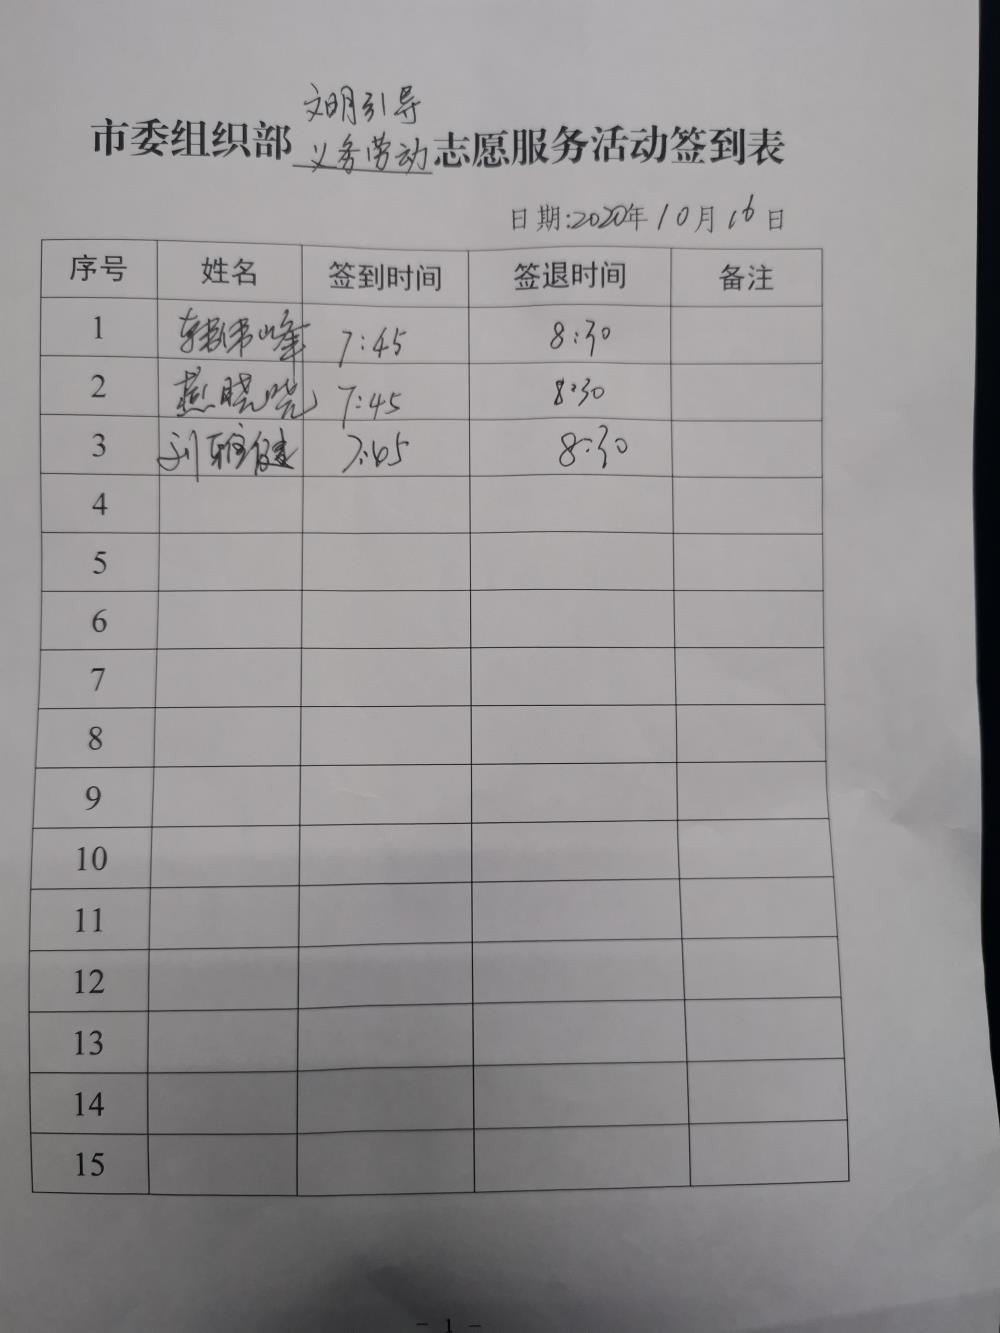 文明引导
市委组织部 义务劳动 志愿服务活动签到表
日期:2020年10月16日
序号 姓名 签到时间 签退时间 备注
1 7:45 8:30
2 燕晓晓 7:45 8:30
3 刘雅健 7:45 8:30
4
5
6
7
8
9
10
11
12
13
14
15
- 1 -